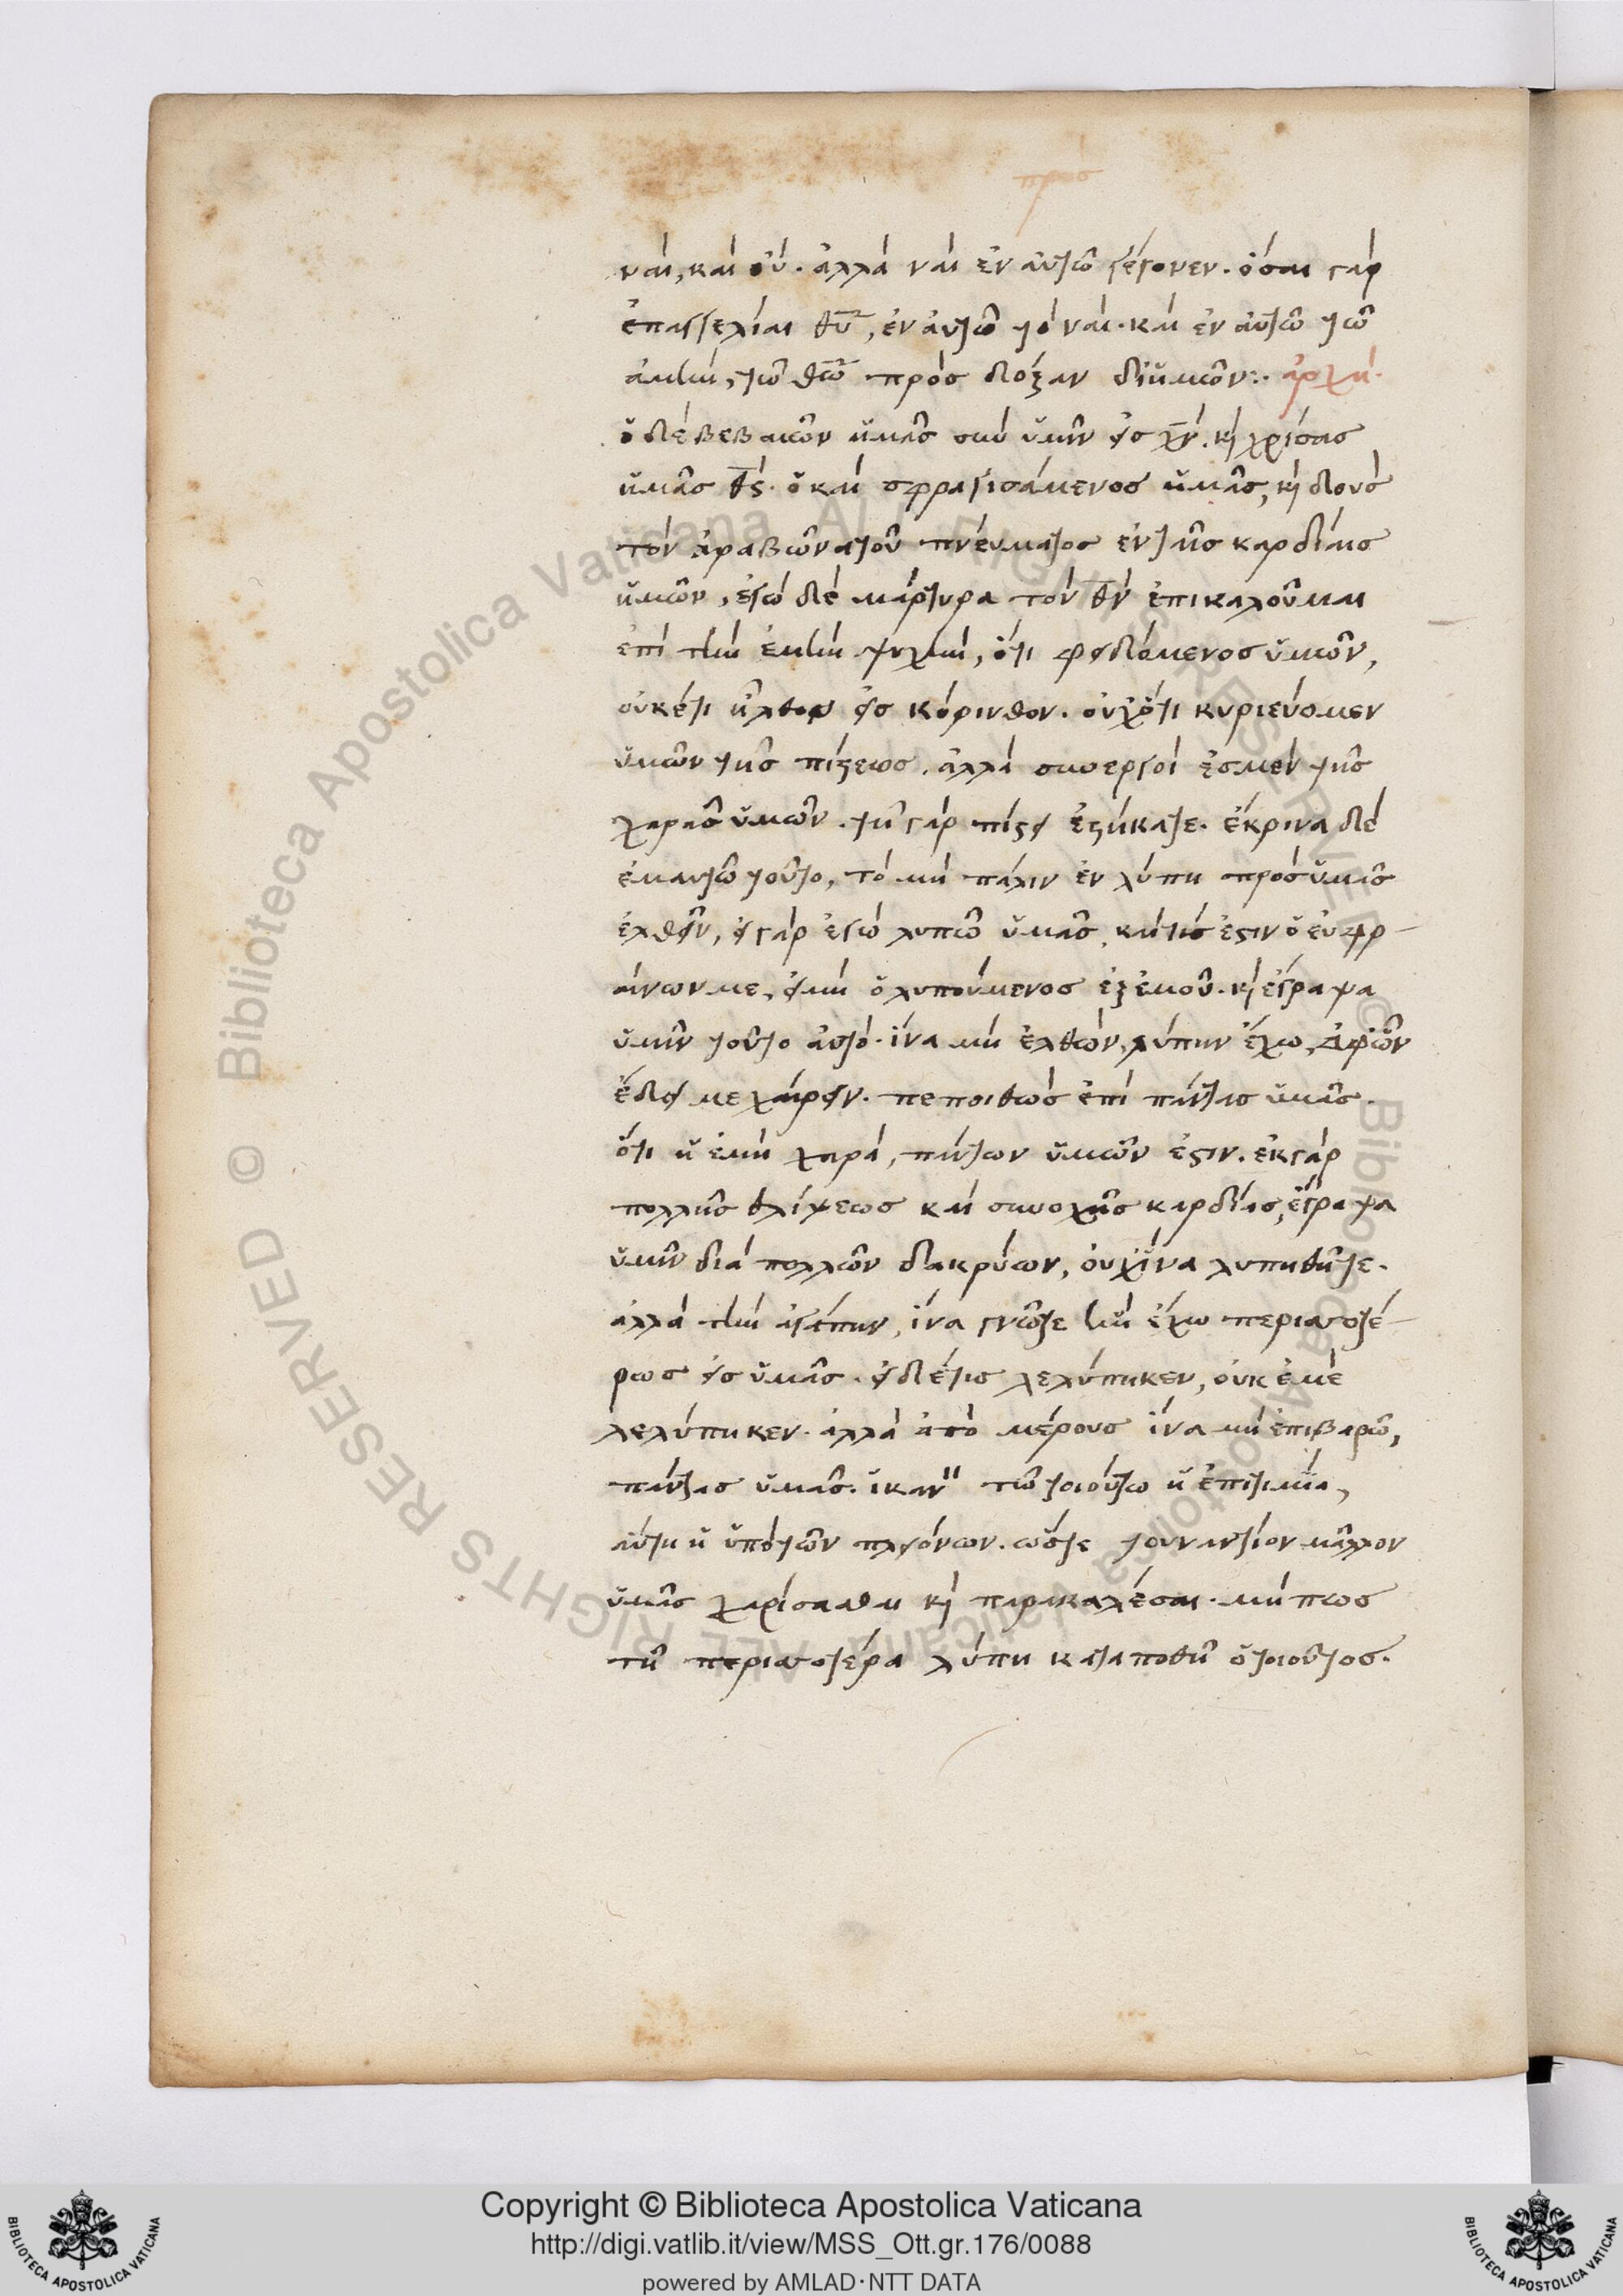 προσ
ναὶ, καὶ οὔ. ἀλλὰ ναὶ ἐν αὐτῶ γέγονεν. ὅσαι γὰρ
ἐπαγγελίαι θυ, ἐν αὐτῶ τὸ ναὶ. καὶ ἐν αὐτῶ τῶ
ἀμὴν, τῶ θῶ πρὸς δόξαν δι ἡμῶν:. ἀρχὴ.
ὁ δὲ βεβαιῶν ἡμᾶς σὺν ὑμῖν εἰς χν. κὶ χρίσας
ἡμᾶς θς. ὁ καὶ σφραγισάμενος ἡμᾶς, κὶ δοὺς
τὸν ἀραβῶνα τοῦ πνέυματος ἐν ταῖς καρδίαις
ἡμῶν, ἐγὼ δὲ μάρτυρα τὸν θν ἐπικαλοῦμαι
ἐπὶ τὴν ἐμὴν ψυχὴν, ὅτι φειδόμενος ὑμῶν,
οὐκέτι ἦλθον εἰς κόρινθον. οὐχ ὅτι κυριεύομεν
ὑμῶν τῆς πίστεως. ἀλλὰ συνεργοὶ ἐσμὲν τῆς
χαρᾶς ὑμῶν. τῆ γὰρ πίστει ἐστήκατε. ἔκρινα δὲ
ἐμαυτῶ τοῦτο, τὸ μὴ πάλιν ἐν λύπη πρὸς ὑμᾶς
ἐλθεῖν, εἰ γὰρ ἐγὼ λυπῶ ὑμᾶς, καὶ τίς ἐστιν ὁ εὐφρ
αίνων με, εἰ μὴ ὁ λυπούμενος ἐξ ἐμοῦ. κὶ ἔγραψα
ὑμῖν τοῦτο αὐτὸ. ἵνα μὴ ἐλθὼν, λύπην ἔχω, ἀφ ὧν
ἔδει με χαίρειν. πεποιθὼς ἐπὶ πάντας ὑμᾶς.
ὅτι ἡ ἐμὴ χαρὰ, πάντων ὑμῶν ἐστιν. ἐκ γὰρ
πολλῆς θλίψεως καὶ συνοχῆς καρδίας, ἔγραψα
ὑμῖν διὰ πολλῶν δακρύων, οὐχ ἵνα λυπηθῆτε.
ἀλλὰ τὴν ἀγάπην, ἵνα γνῶτε ἣν ἔχω περισσοτέ
ρως εἰς ὑμᾶς. εἰ δέ τις λελύπηκεν, οὐκ ἐμὲ
λελύπηκεν. ἀλλὰ ἀπὸ μέρους ἵνα μὴ ἐπιβαρῶ,
πάντας ὑμᾶς. ἱκαν τῶ τοιούτω ἡ ἐπιτιμία,
αὕτη ἡ ὑπὸ τῶν πλειόνων. ὥστε τουναντίον μᾶλλον
ὑμᾶς χαρίσασθαι κὶ παρακαλέσαι. μήπως
τῆ περισσοτέρα λύπη καταποθῆ ὁ τοιοῦτος.
© Biblioteca Apostolica Vaticana ALL RIGHTS RESERVED
© Biblioteca Apostolica Vaticana ALL RIGHTS RESERVED
Copyright © Biblioteca Apostolica Vaticana
http://digi.vatlib.it/view/MSS_Ott.gr.176/0088
powered by AMLAD·NTT DATA
BIBLIOTECA APOSTOLICA VATICANA
BIBLIOTECA APOSTOLICA VATICANA